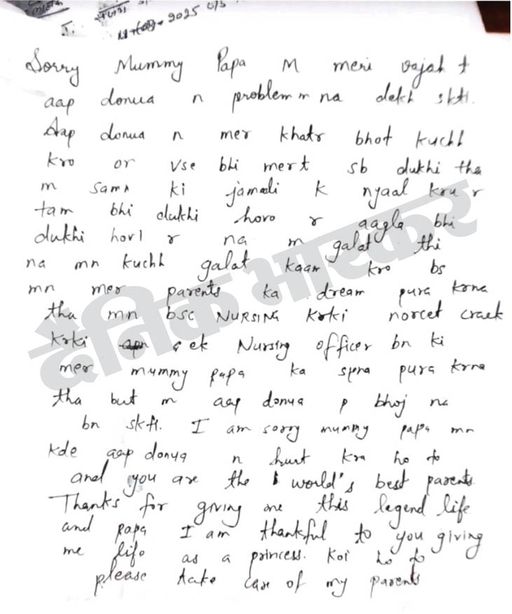 2025
Sorry Mummy Papa M meri vajah t
aap donua n problem m na dekh skti.
Aap donua n mer khatr bhot kuchh
kro or vse bhi mert sb dukhi tha
m samn ki jamadi k nyaal kru r
tam bhi dukhi hovo r aagla bhi
dukhi hovl r na m galat thi
na mn kuchh galat kaam kro bs
mn mer parents ka dream pura krna
tha mn bsc NURSING krki norcet crack
krki ek Nursing officer bn ki
mer mummy papa ka spna pura krna
tha but m aap donua p bhoj na
bn skti. I am sorry mummy papa mn
kde aap donua n hurt kra ho to
and you are the world's best parents
Thanks for giving me this legend life
and papa I am thankful to you giving
me life as a princess. Koi ho to
please take care of my parents
दैनिक भास्कर